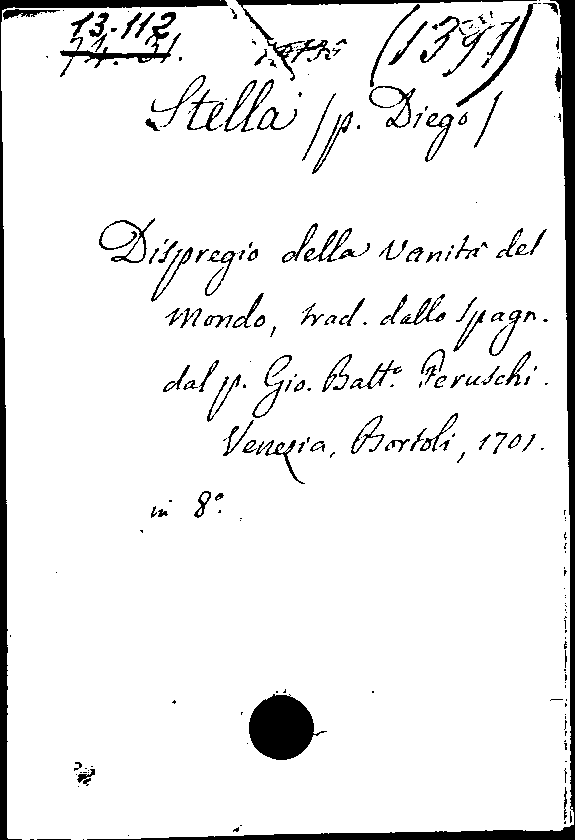 13-112
74. 31.
(1391)
Stella (p. Diego)
Dispregio della vanità del
Mondo, trad. dallo spagn.
dal p. Gio. Batt.ª Peruschi.
Venezia, Bortoli, 1701.
in 8.º